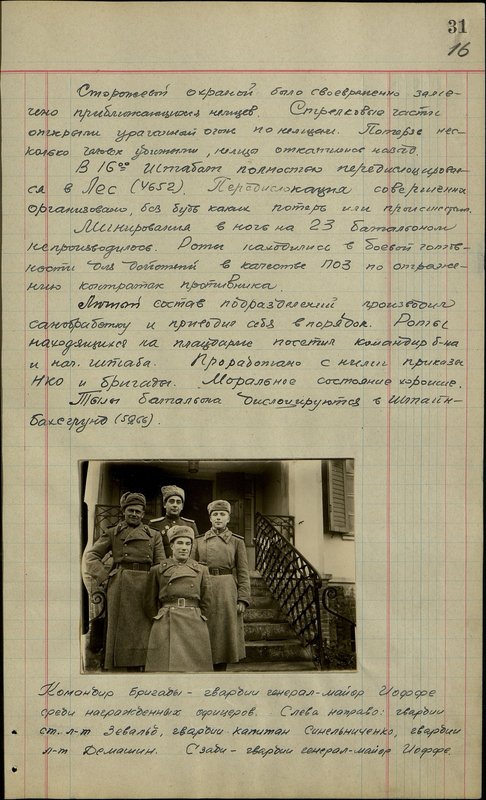 31
16
Сторожевой охраной было своевременно заме-
чено приближающихся немцев. Стрелковые части
открыли ураганный огонь по немцам. Потеряв нес-
колько человек убитыми, немцы откатились назад.
В 16⁰⁰ Штабат полностью передислоцировал-
ся в Лес (4652). Передислокация совершенна
организовано, без буть каких потерь или происшествий.
Минирования в ночь на 23 батальоном
непроизводилось. Роты находились в боевой готов-
ности для действий в качестве ПОЗ по отраже-
нию контратак противника.
Личный состав подразделений производил
санобработку и приводил себя в порядок. Роты
находящиеся на плацдарме посетил командир б-на
и нач. штаба. Проработано с ними приказы
НКО и бригады. Моральное состояние хорошие.
Тылы батальона дислоцируются в Штайн-
(5266).
Командир бригады - гвардии генерал-майор Иоффе
среди награжденных офицеров. Слева направо: гвардии
ст. л-т Зевальд, гвардии капитан Синельниченко, гвардии
л-т Демашин. Сзади - гвардии генерал-майор Иоффе.